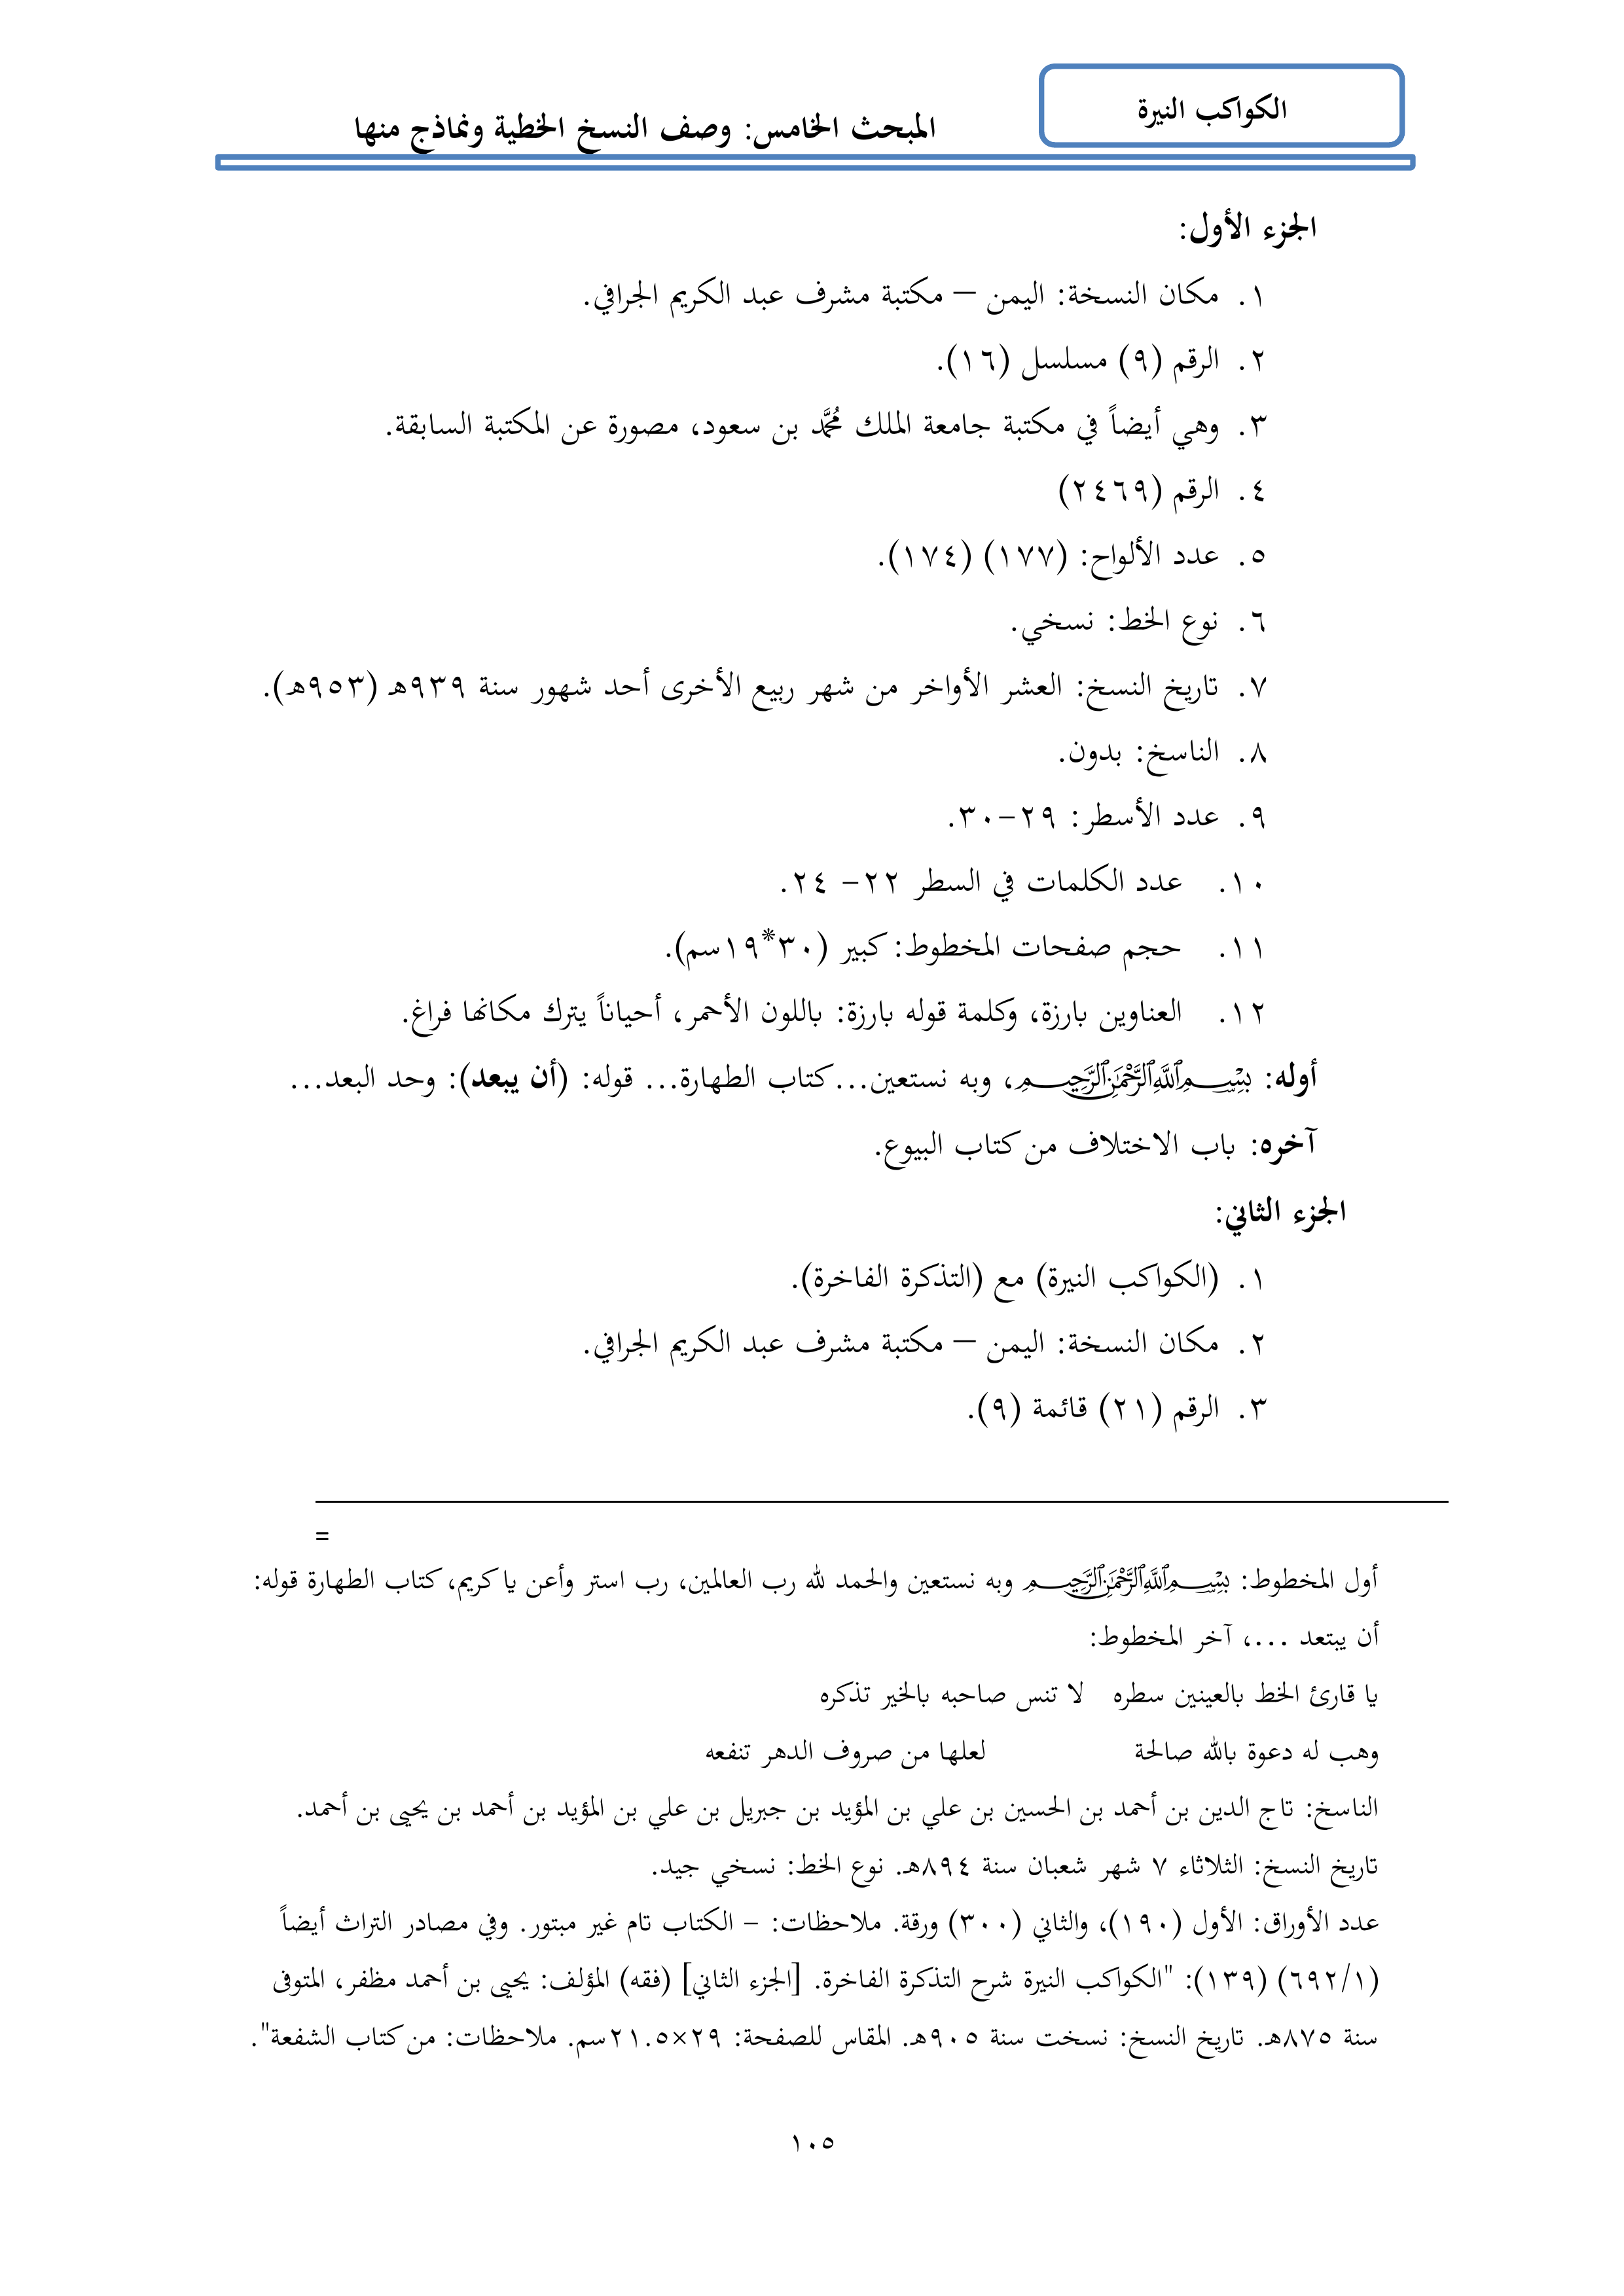 الكواكب النيرة
المبحث الخامس: وصف النسخ الخطية ونماذج منها
الجزء الأول:
١. مكان النسخة: اليمن – مكتبة مشرف عبد الكريم الجرافي.
٢. الرقم (٩) مسلسل (١٦).
٣. وهي أيضاً في مكتبة جامعة الملك مُحَمَّد بن سعود، مصورة عن المكتبة السابقة.
٤. الرقم (٢٤٦٩)
٥. عدد الألواح: (١٧٧) (١٧٤).
٦. نوع الخط: نسخي.
٧. تاريخ النسخ: العشر الأواخر من شهر ربيع الأخرى أحد شهور سنة ٩٣٩هـ (٩٥٣هـ).
٨. الناسخ: بدون.
٩. عدد الأسطر: ٢٩-٣٠.
١٠. عدد الكلمات في السطر ٢٢- ٢٤.
١١. حجم صفحات المخطوط: كبير (٣٠*١٩سم).
١٢. العناوين بارزة، وكلمة قوله بارزة: باللون الأحمر، أحياناً يترك مكانها فراغ.
أوله: بِسْمِ اللَّهِ الرَّحْمَٰنِ الرَّحِيمِ، وبه نستعين...كتاب الطهارة... قوله: (أن يبعد): وحد البعد...
آخره: باب الاختلاف من كتاب البيوع.
الجزء الثاني:
١. (الكواكب النيرة) مع (التذكرة الفاخرة).
٢. مكان النسخة: اليمن – مكتبة مشرف عبد الكريم الجرافي.
٣. الرقم (٢١) قائمة (٩).
=
أول المخطوط: بِسْمِ اللَّهِ الرَّحْمَٰنِ الرَّحِيمِ وبه نستعين والحمد لله رب العالمين، رب استر وأعن يا كريم، كتاب الطهارة قوله:
أن يبتعد ...، آخر المخطوط:
يا قارئ الخط بالعينين سطره لا تنس صاحبه بالخير تذكره
وهب له دعوة بالله صالحة لعلها من صروف الدهر تنفعه
الناسخ: تاج الدين بن أحمد بن الحسين بن علي بن المؤيد بن جبريل بن علي بن المؤيد بن أحمد بن يحيى بن أحمد.
تاريخ النسخ: الثلاثاء ٧ شهر شعبان سنة ٨٩٤هـ. نوع الخط: نسخي جيد.
عدد الأوراق: الأول (١٩٠)، والثاني (٣٠٠) ورقة. ملاحظات: - الكتاب تام غير مبتور. وفي مصادر التراث أيضاً
(٦٩٢/١) (١٣٩): "الكواكب النيرة شرح التذكرة الفاخرة. [الجزء الثاني] (فقه) المؤلف: يحيى بن أحمد مظفر، المتوفى
سنة ٨٧٥هـ. تاريخ النسخ: نسخت سنة ٩٠٥هـ. المقاس للصفحة: ٢٩×٢١.٥سم. ملاحظات: من كتاب الشفعة".
١٠٥